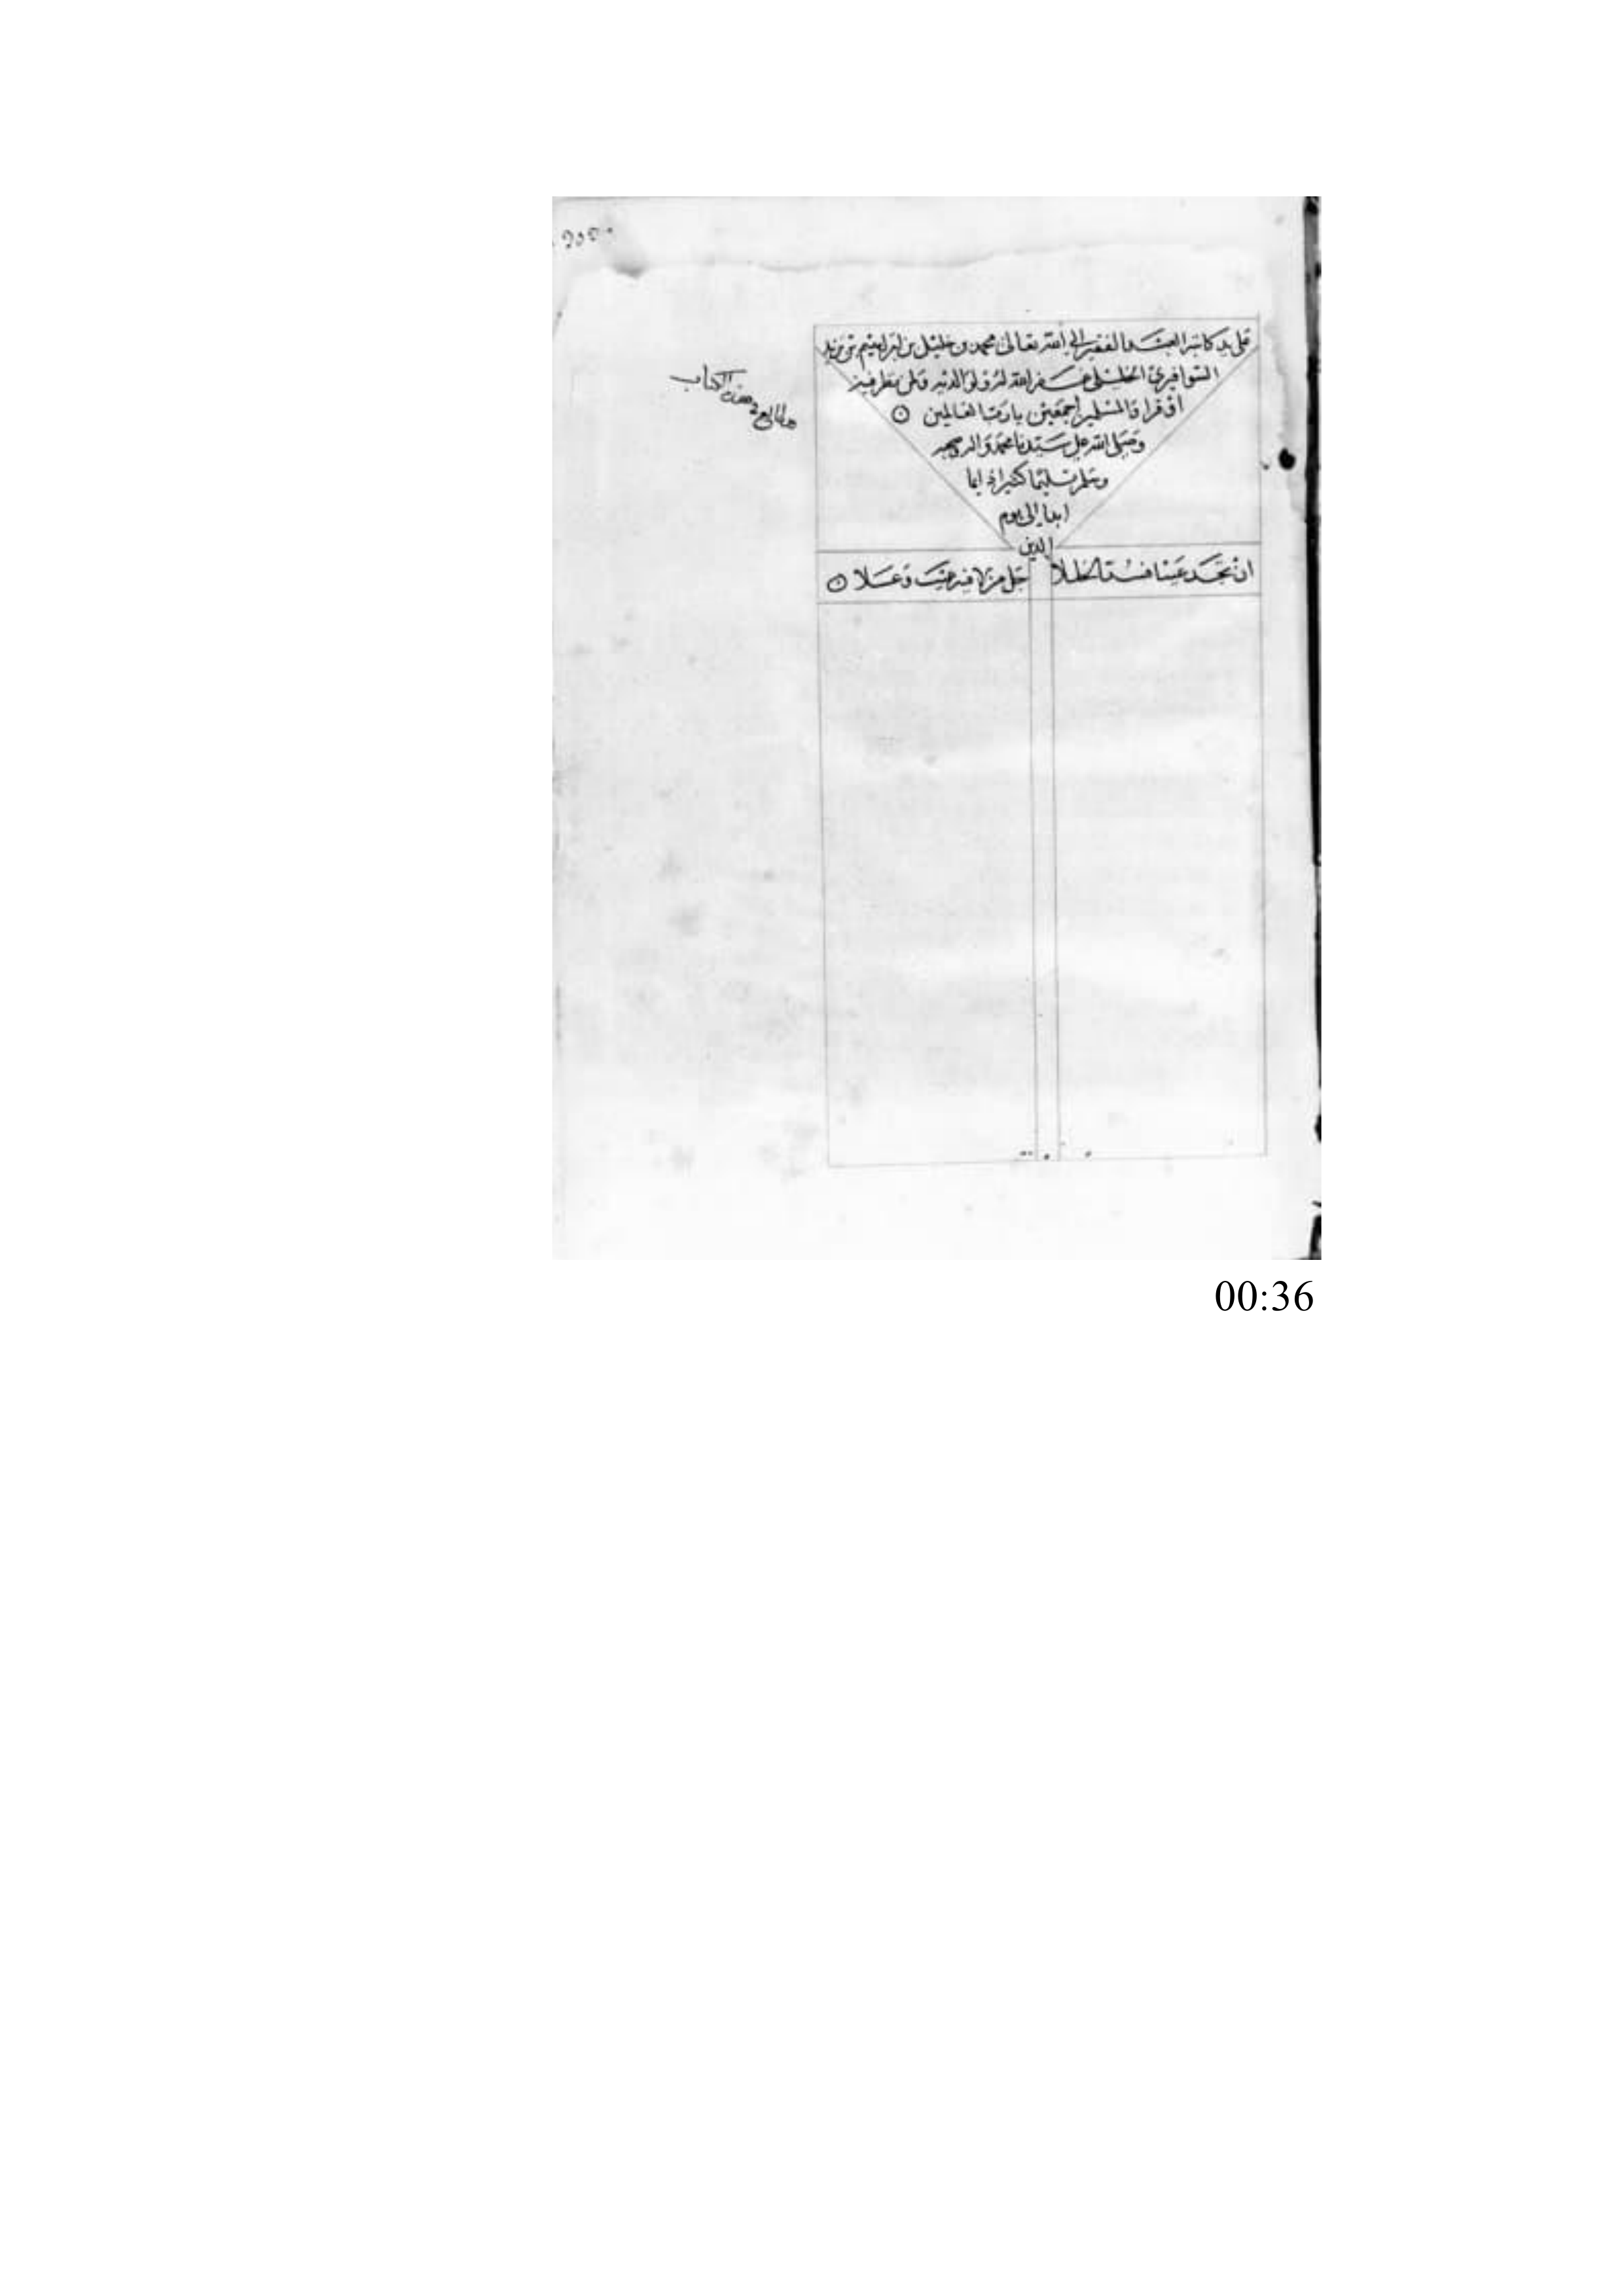 على يد كاتبه العبد الفقير إلى الله تعالى محمد بن خليل بن ابراهيم بن يزيد
الشوافيري الخليلي غفر الله له ولوالديه ولمن نظر فيه
او قرا والمسلمين اجمعين يا رب العالمين
وصلى الله على سيدنا محمد واله وصحبه
وسلم تسليما كثيرا دايما
ابدا إلى يوم
الدين
ان تجد عيبا فسد الخللا جل من لا فيه عيب وعلا
هذا الكتاب
00:36